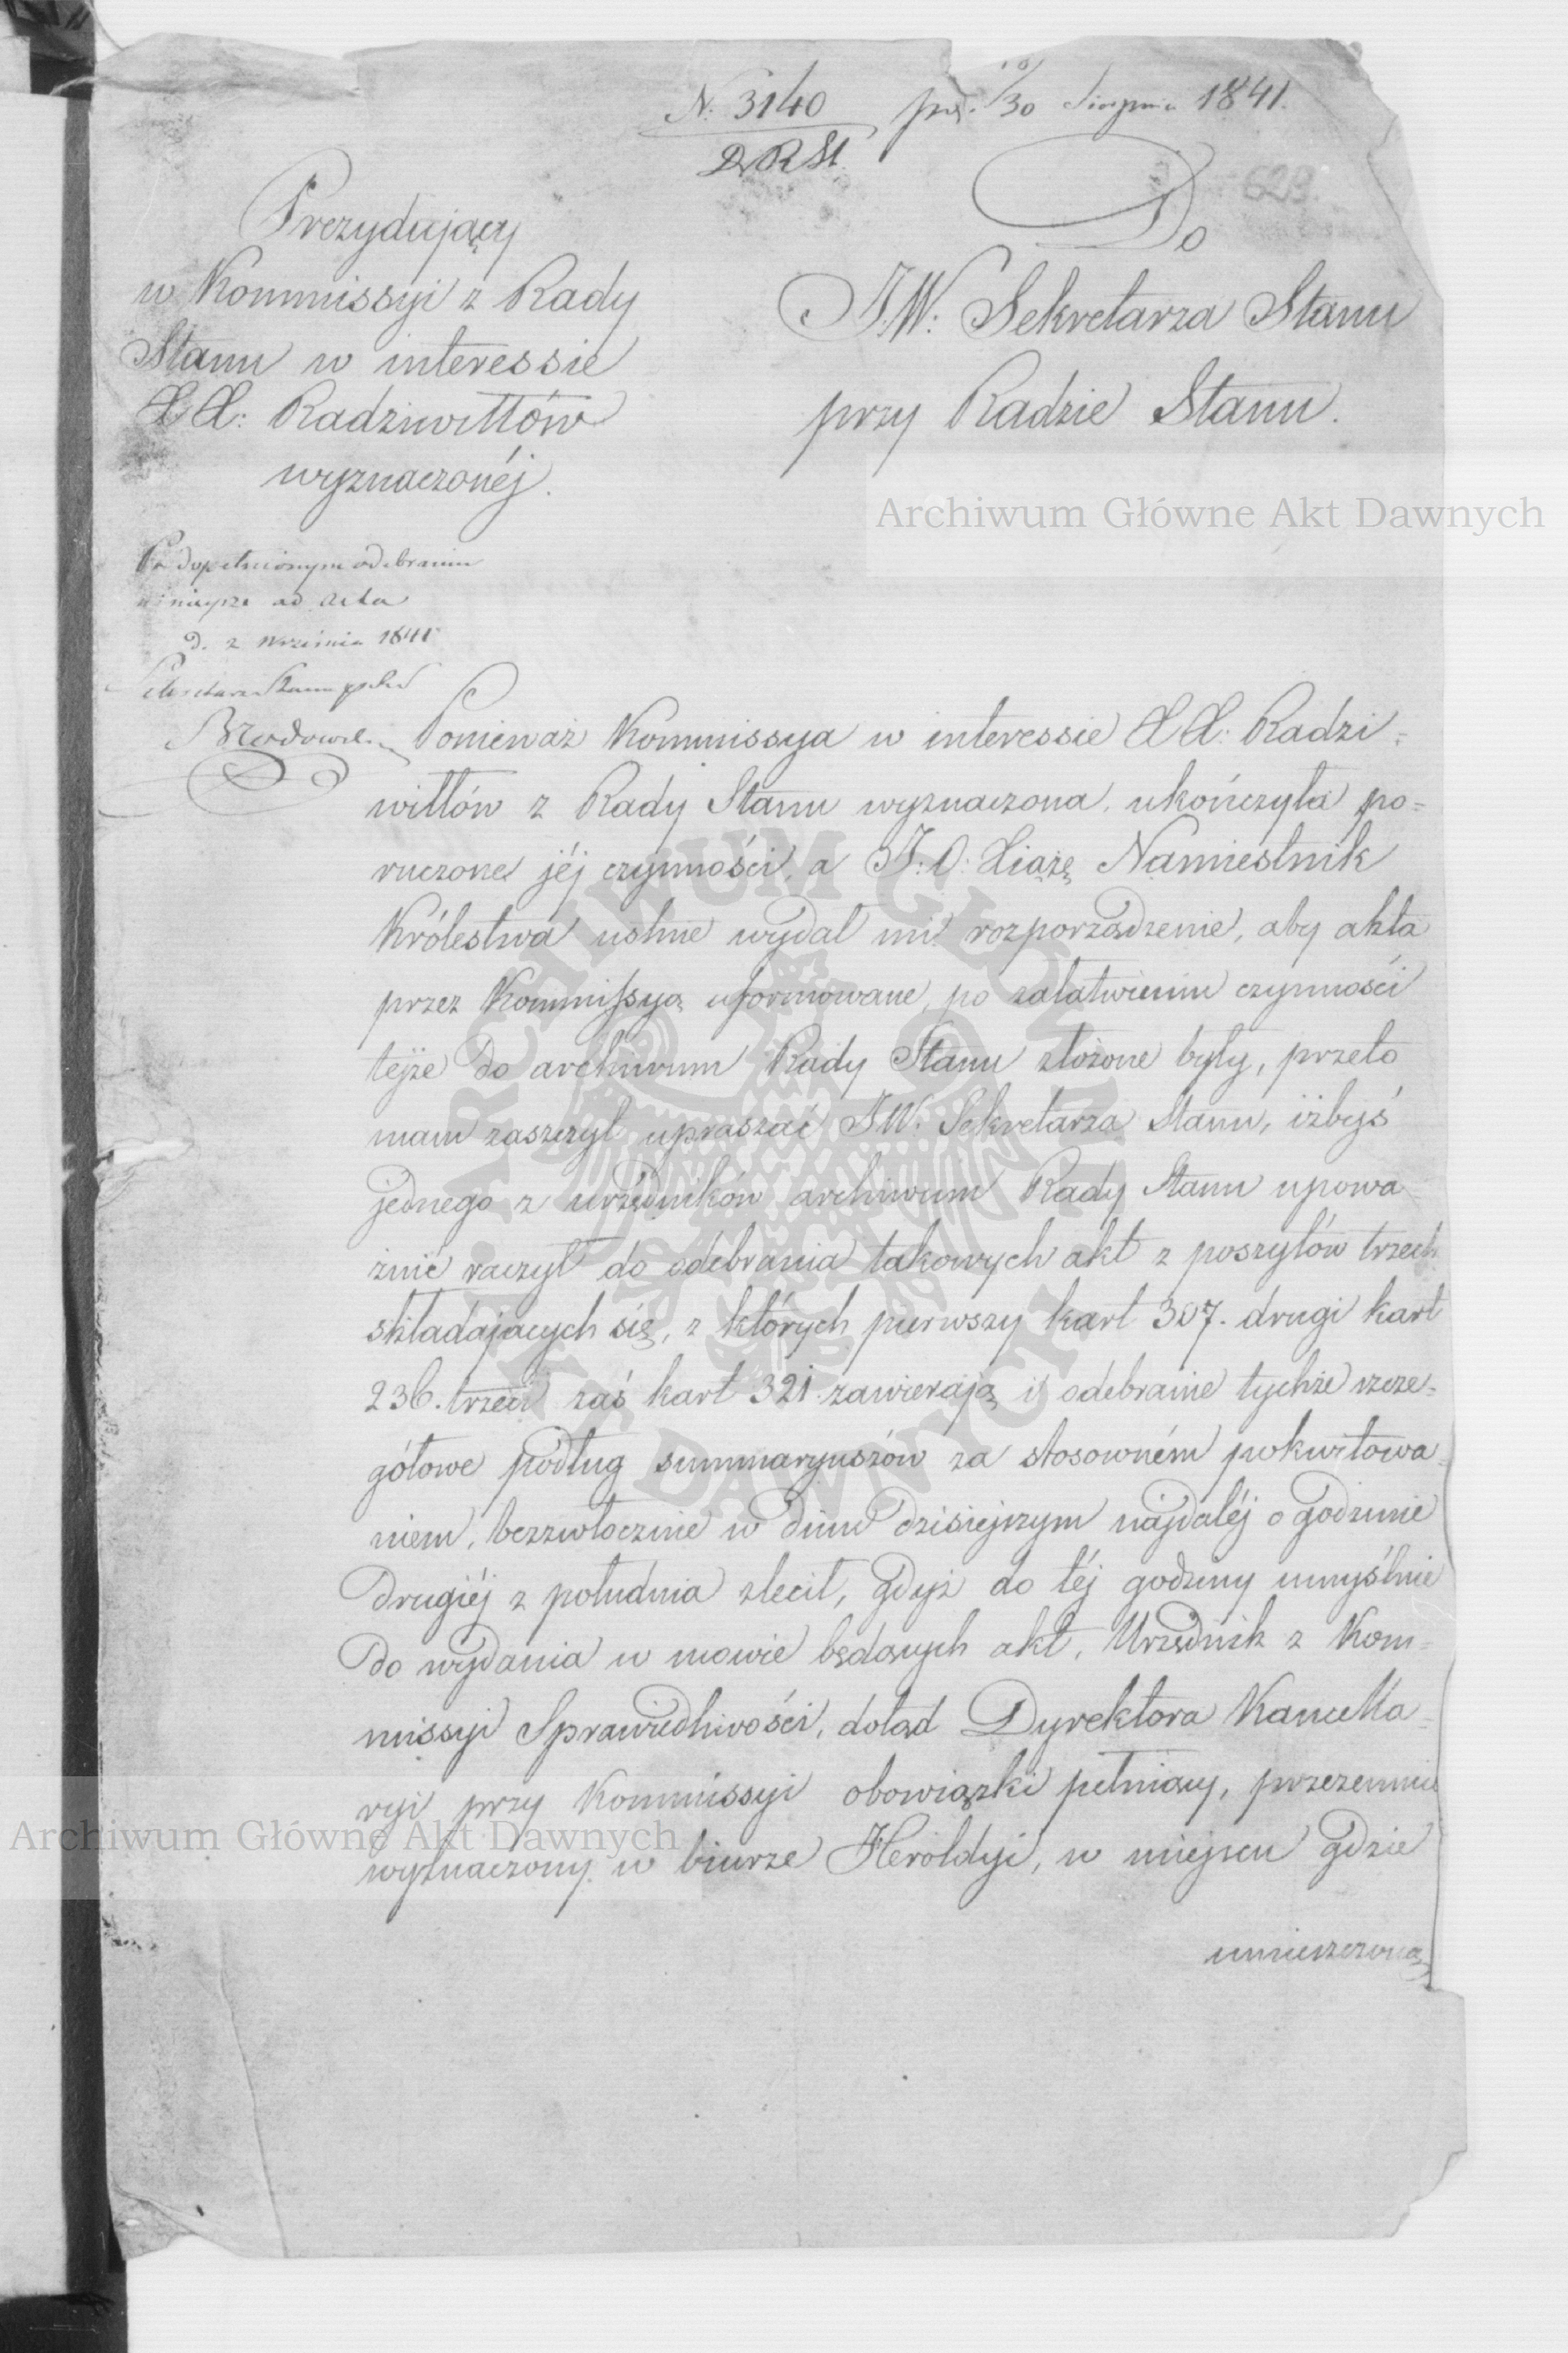 N: 3140 prz. 18/30 Sierpnia 1841.
D R St.
629.
Prezydujący
w Kommissyi z Rady
Stanu w interessie
XX: Radziwiłłów
wyznaczonéj.
Do
J.W: Sekretarza Stanu
przy Radzie Stanu.
Archiwum Główne Akt Dawnych
Po dopełnionym odebraniu
niniejsze ad acta
d. 2 Września 1841
Sekretarz Stanu
Ponieważ Kommissya w interessie XX: Radzi=
wiłłów z Rady Stanu wyznaczona, ukończyła po=
ruczone jéj czynności, a J:O: Xiążę Namiestnik
Królestwa ustnie wydał mi rozporządzenie, aby akta
przez Kommissyą uformowane, po załatwieniu czynności
tejże do archiwum Rady Stanu złożone były, przeto
mam zaszczyt upraszać JW. Sekretarza Stanu, iżbyś
jednego z urzędników archiwum Rady Stanu upowa=
żnić raczył do odebrania takowych akt z poszytów trzech
składających się, z których pierwszy kart 307. drugi kart
236. trzeci zaś kart 321. zawierają i odebranie tychże szcze=
gółowe podług summaryuszów za stosowném pokwitowa=
niem, bezzwłocznie w dniu dzisiejszym najdaléj o godzinie
drugiéj z południa zlecił, gdyż do téj godziny umyślnie
do wydania w mowie będących akt, Urzędnik z Kom=
missyi Sprawiedliwości, dotąd Dyrektora Kancella=
ryi przy Kommissyi obowiązki pełniący, przezemnie
wyznaczony w biurze Heroldyi, w miejscu gdzie
umieszczoną
Archiwum Główne Akt Dawnych
ARCHIWUM GŁÓWNE AKT DAWNYCH